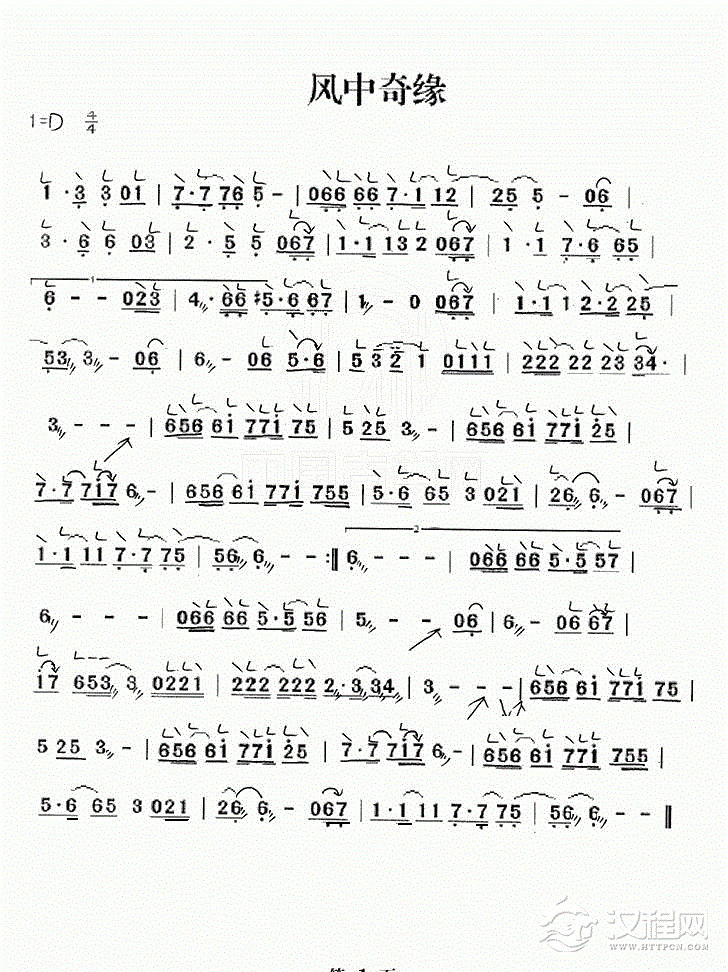 风中奇缘
1=D 4/4
1·3 3 01 | 7·7 76 5 - | 066 66 7·1 12 | 25 5 - 06 |
3·6 6 03 | 2·5 5 067 | 1·1 132 067 | 1·1 7·6 65 |
1
6 - - 023 | 4 66 #5·6 67 | 1 - 0 067 | 1·1 1 2·2 25 |
53 3 - 06 | 6 - 06 5·6 | 5 32 1 0111 | 222 22 23 34· |
3 - - - | 656 61 771 75 | 5 25 3 - | 656 61 771 25 |
7·7 717 6 - | 656 61 771 755 | 5·6 65 3 021 | 26 6 - 067 |
2
1·1 11 7·7 75 | 56 6 - - :‖ 6 - - - | 066 66 5·5 57 |
6 - - - | 066 66 5·5 56 | 5 - - 06 | 6 - 06 67 |
17 653 3 0221 | 222 222 2·3 34 | 3 - - - | 656 61 771 75 |
5 25 3 - | 656 61 771 25 | 7·7 717 6 - | 656 61 771 755 |
5·6 65 3 021 | 26 6 - 067 | 1·1 11 7·7 75 | 56 6 - - ‖
汉程网
WWW.HTTPCN.COM